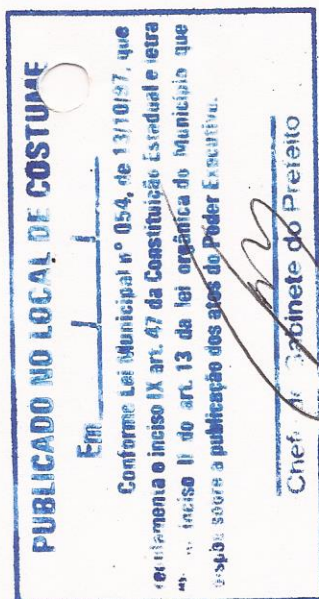 PUBLICADO NO LOCAL DE COSTUME
Em ____/____/____
Conforme Lei Municipal nº 054, de 13/10/97, que
regulamenta o inciso IX art. 47 da Constituição Estadual e letra
inciso II do art. 13 da lei orgânica do Município que
dispõe sobre a publicação dos atos do Poder Executivo.
Chefe de Gabinete do Prefeito